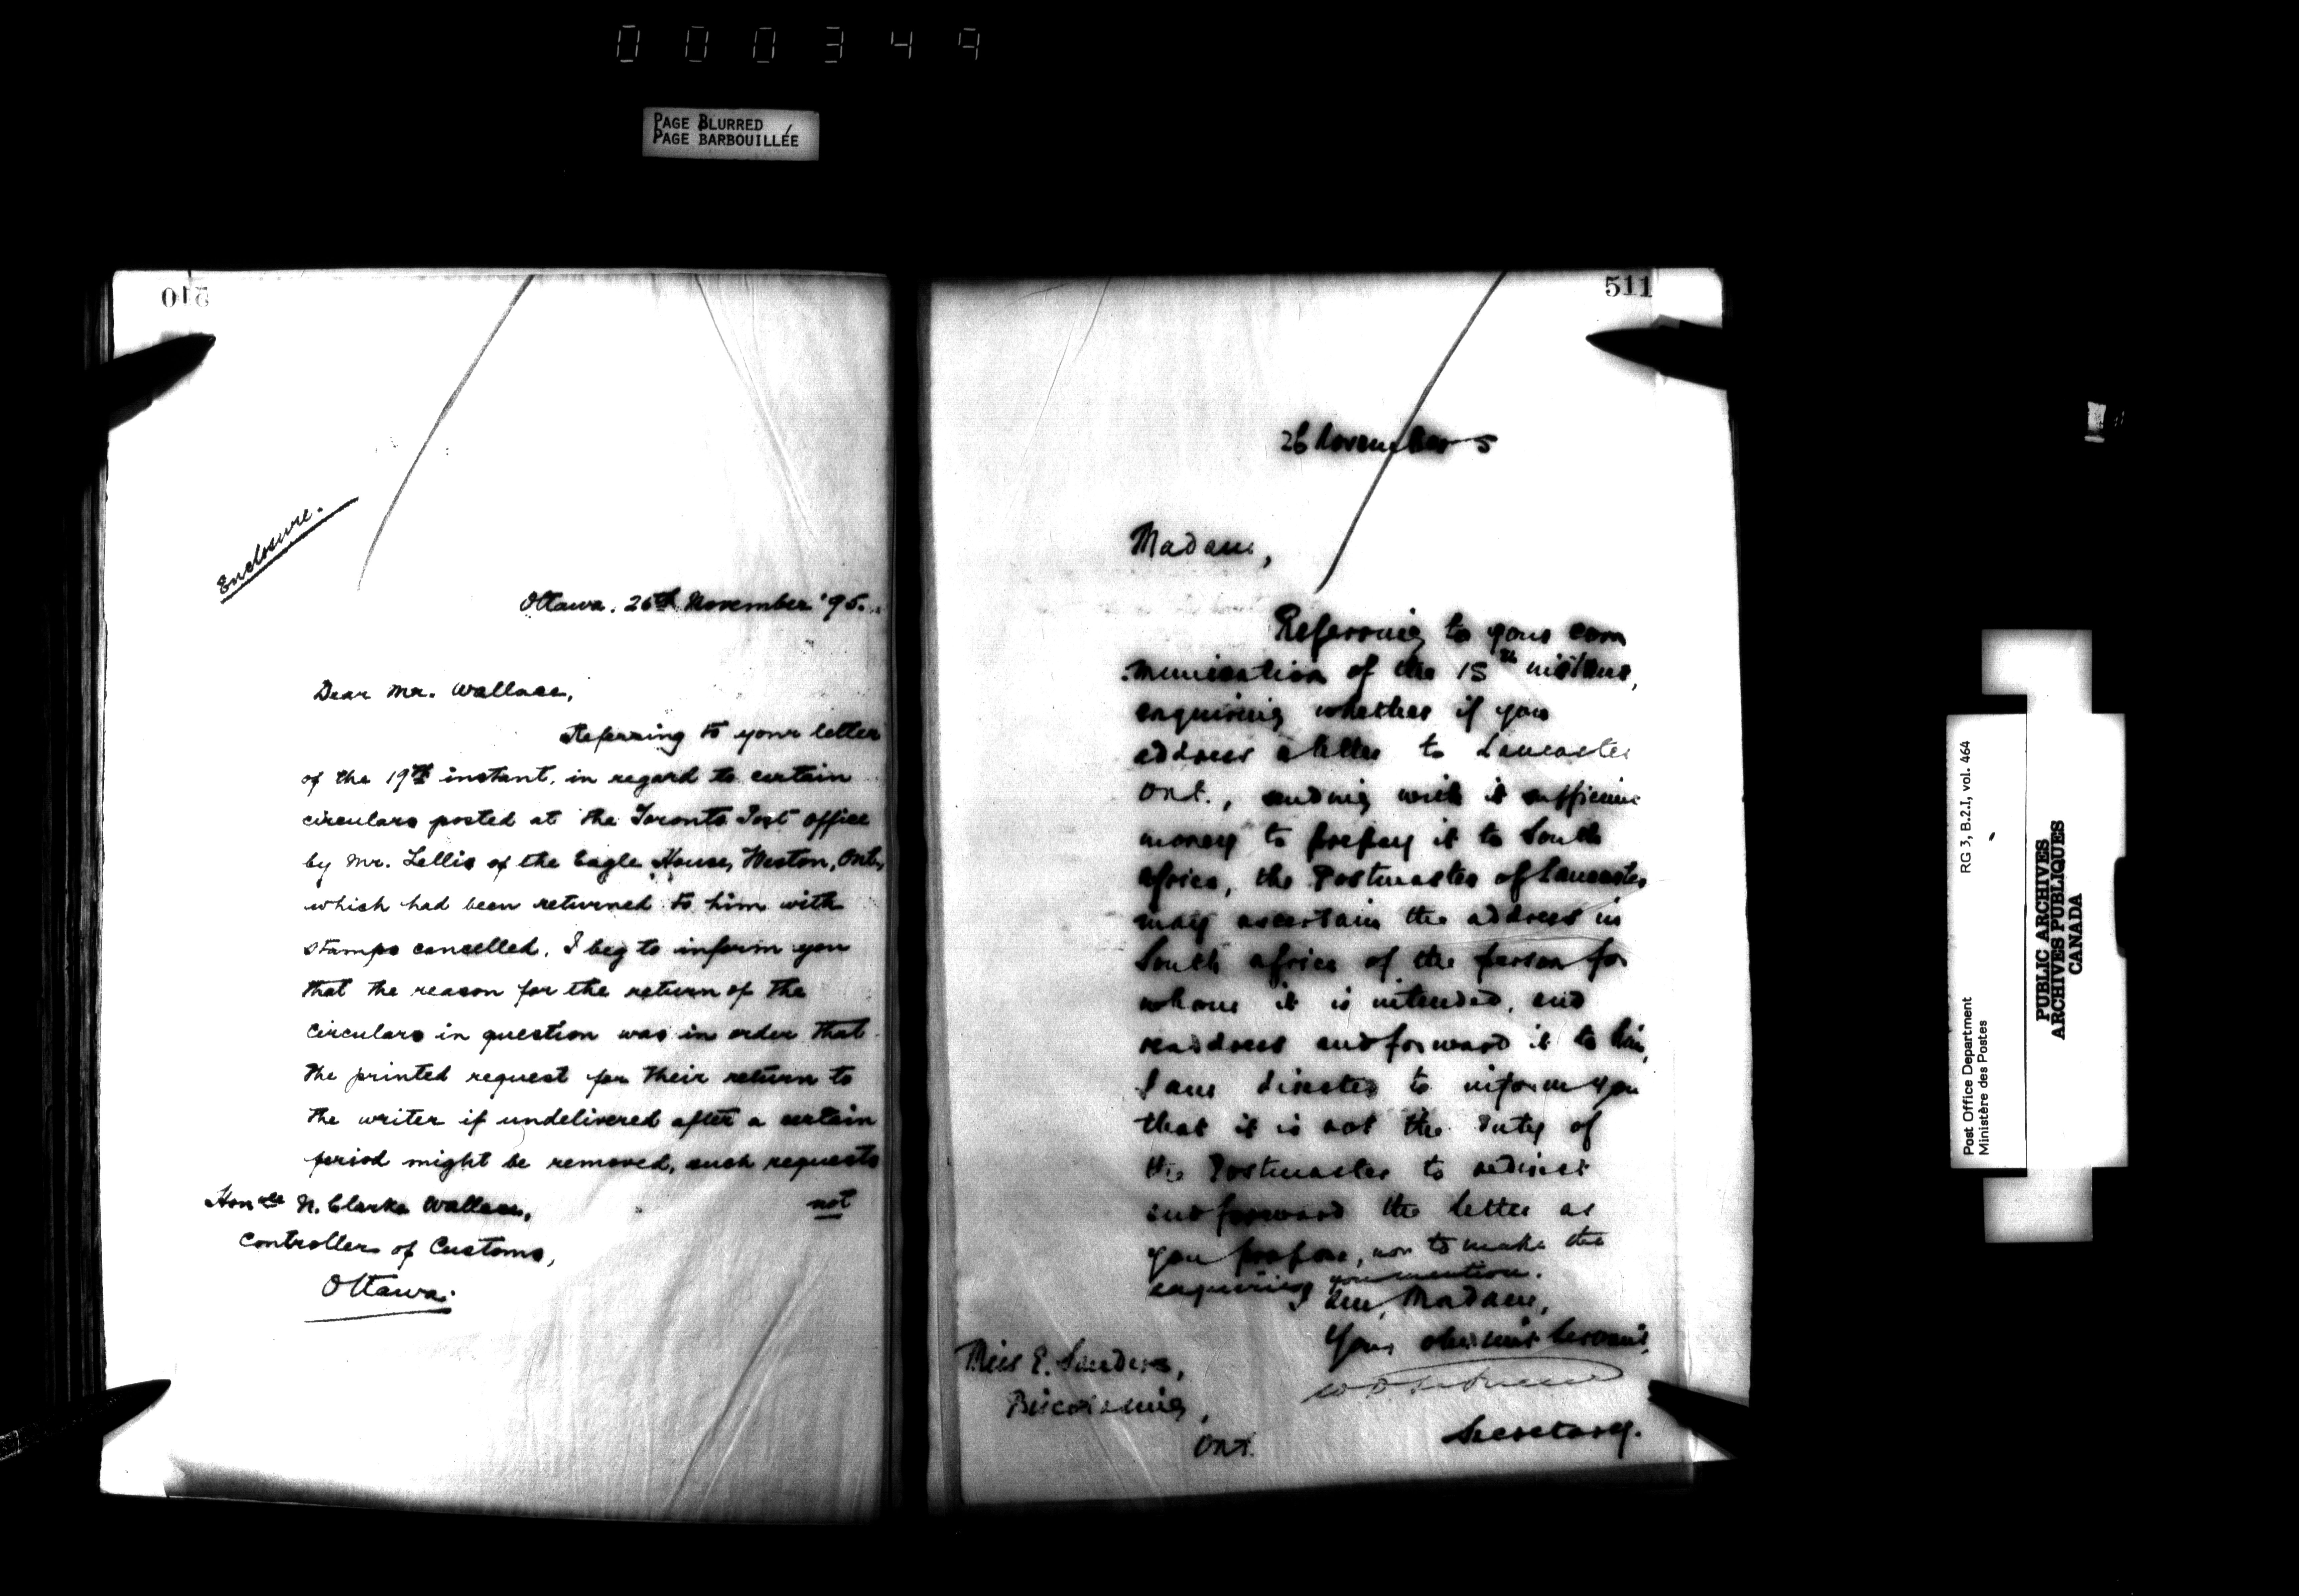 000349
PAGE BLURRED
PAGE BARBOUILLÉE
510
Enclosure.
Ottawa. 26th November '95.
Dear Mr. Wallace,
Referring to your letter
of the 19th instant, in regard to certain
circulars posted at the Toronto Post Office
by Mr. Lellis of the Eagle House, Weston, Ont.,
which had been returned to him with
stamps cancelled, I beg to inform you
that the reason for the return of the
circulars in question was in order that
the printed request for their return to
the writer if undelivered after a certain
period might be removed, such requests
not
Honble N. Clarke Wallace,
Controller of Customs,
Ottawa.
511
26 November 5
Madam,
Referring to your com
munication of the 15th instant,
enquiring whether if you
address a letter to Lancaster
Ont., sending with it sufficient
money to prepay it to South
Africa, the Postmaster of Lancaster
may ascertain the address in
South Africa of the person for
whom it is intended, and
readdress and forward it to him,
I am directed to inform you
that it is not the duty of
the Postmaster to redirect
and forward the letter as
you propose, nor to make the
enquiries you mention.
I am, Madam,
Your obedient Servant,
Secretary.
Miss E. Saunders,
Ont.
Post Office Department
Ministère des Postes
RG 3, B.2.I, vol. 464
PUBLIC ARCHIVES
ARCHIVES PUBLIQUES
CANADA